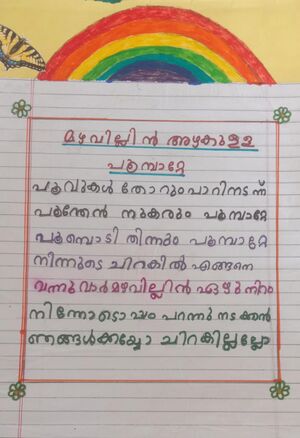 മഴവില്ലിൻ അഴകുള്ള
പൂമ്പാറ്റേ
പൂവുകൾ തോറും പാറിനടന്ന്
പൂന്തേൻ നുകരും പൂമ്പാറ്റേ
പൂമ്പൊടി തിന്നും പൂമ്പാറ്റേ
നിന്നുടെ ചിറകിൽ എങ്ങനെ
വന്നു വാർമഴവില്ലിൻ ഏഴു നിറം
നിന്നോടൊപ്പം പറന്നു നടക്കാൻ
ഞങ്ങൾക്കയ്യോ ചിറകില്ലല്ലോ